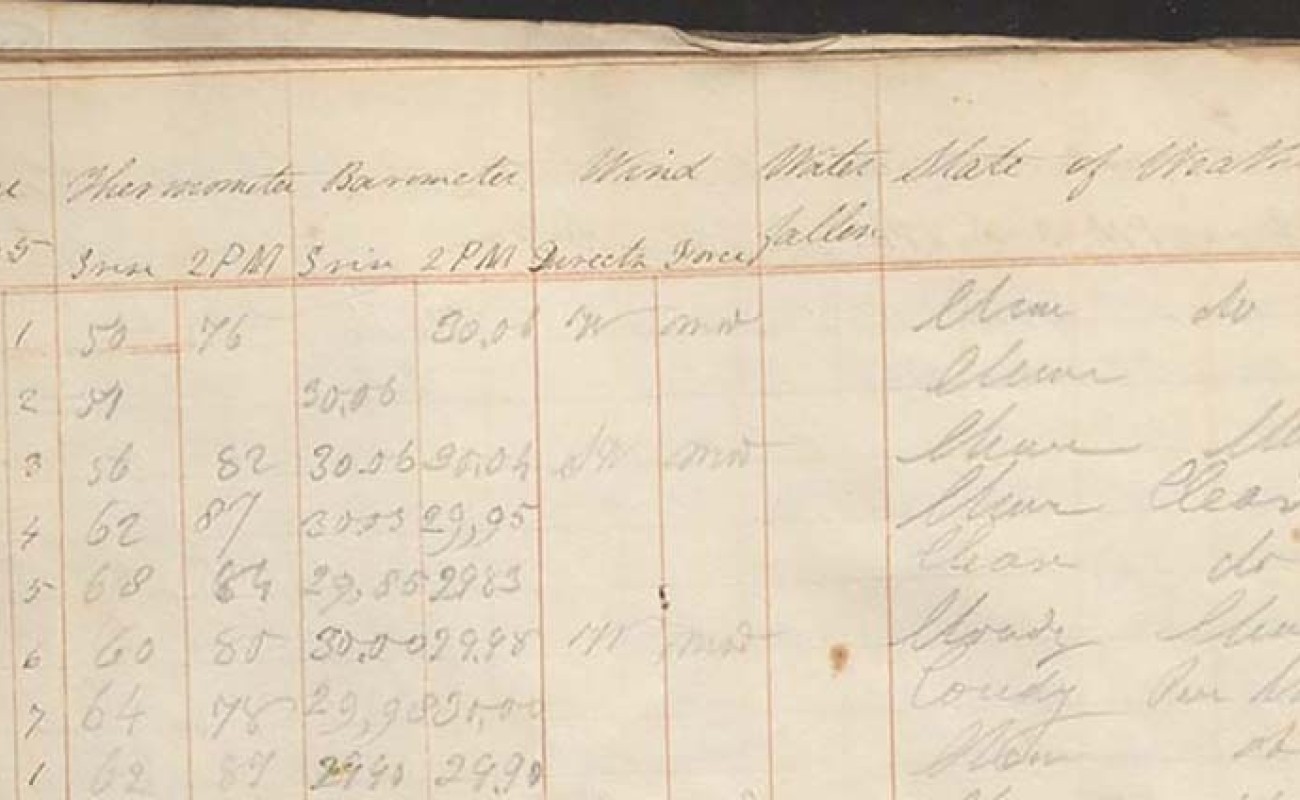 Thermometer Barometer Wind Water State of Weath
5 Srise 2PM Srise 2PM Directn Force fallen
1 50 76 30,06 W mod Clear do
2 51 30,06 Clear
3 56 82 30.06 30.04 SW mod Clear
4 62 87 30.03 29,95 Clear Clear
5 68 84 29,85 2983 Clear do
6 60 80 30.00 29.98 W mod Cloudy Clear
7 64 78 29,98 30,00 Coudy
1 62 87 29.90 Clear do